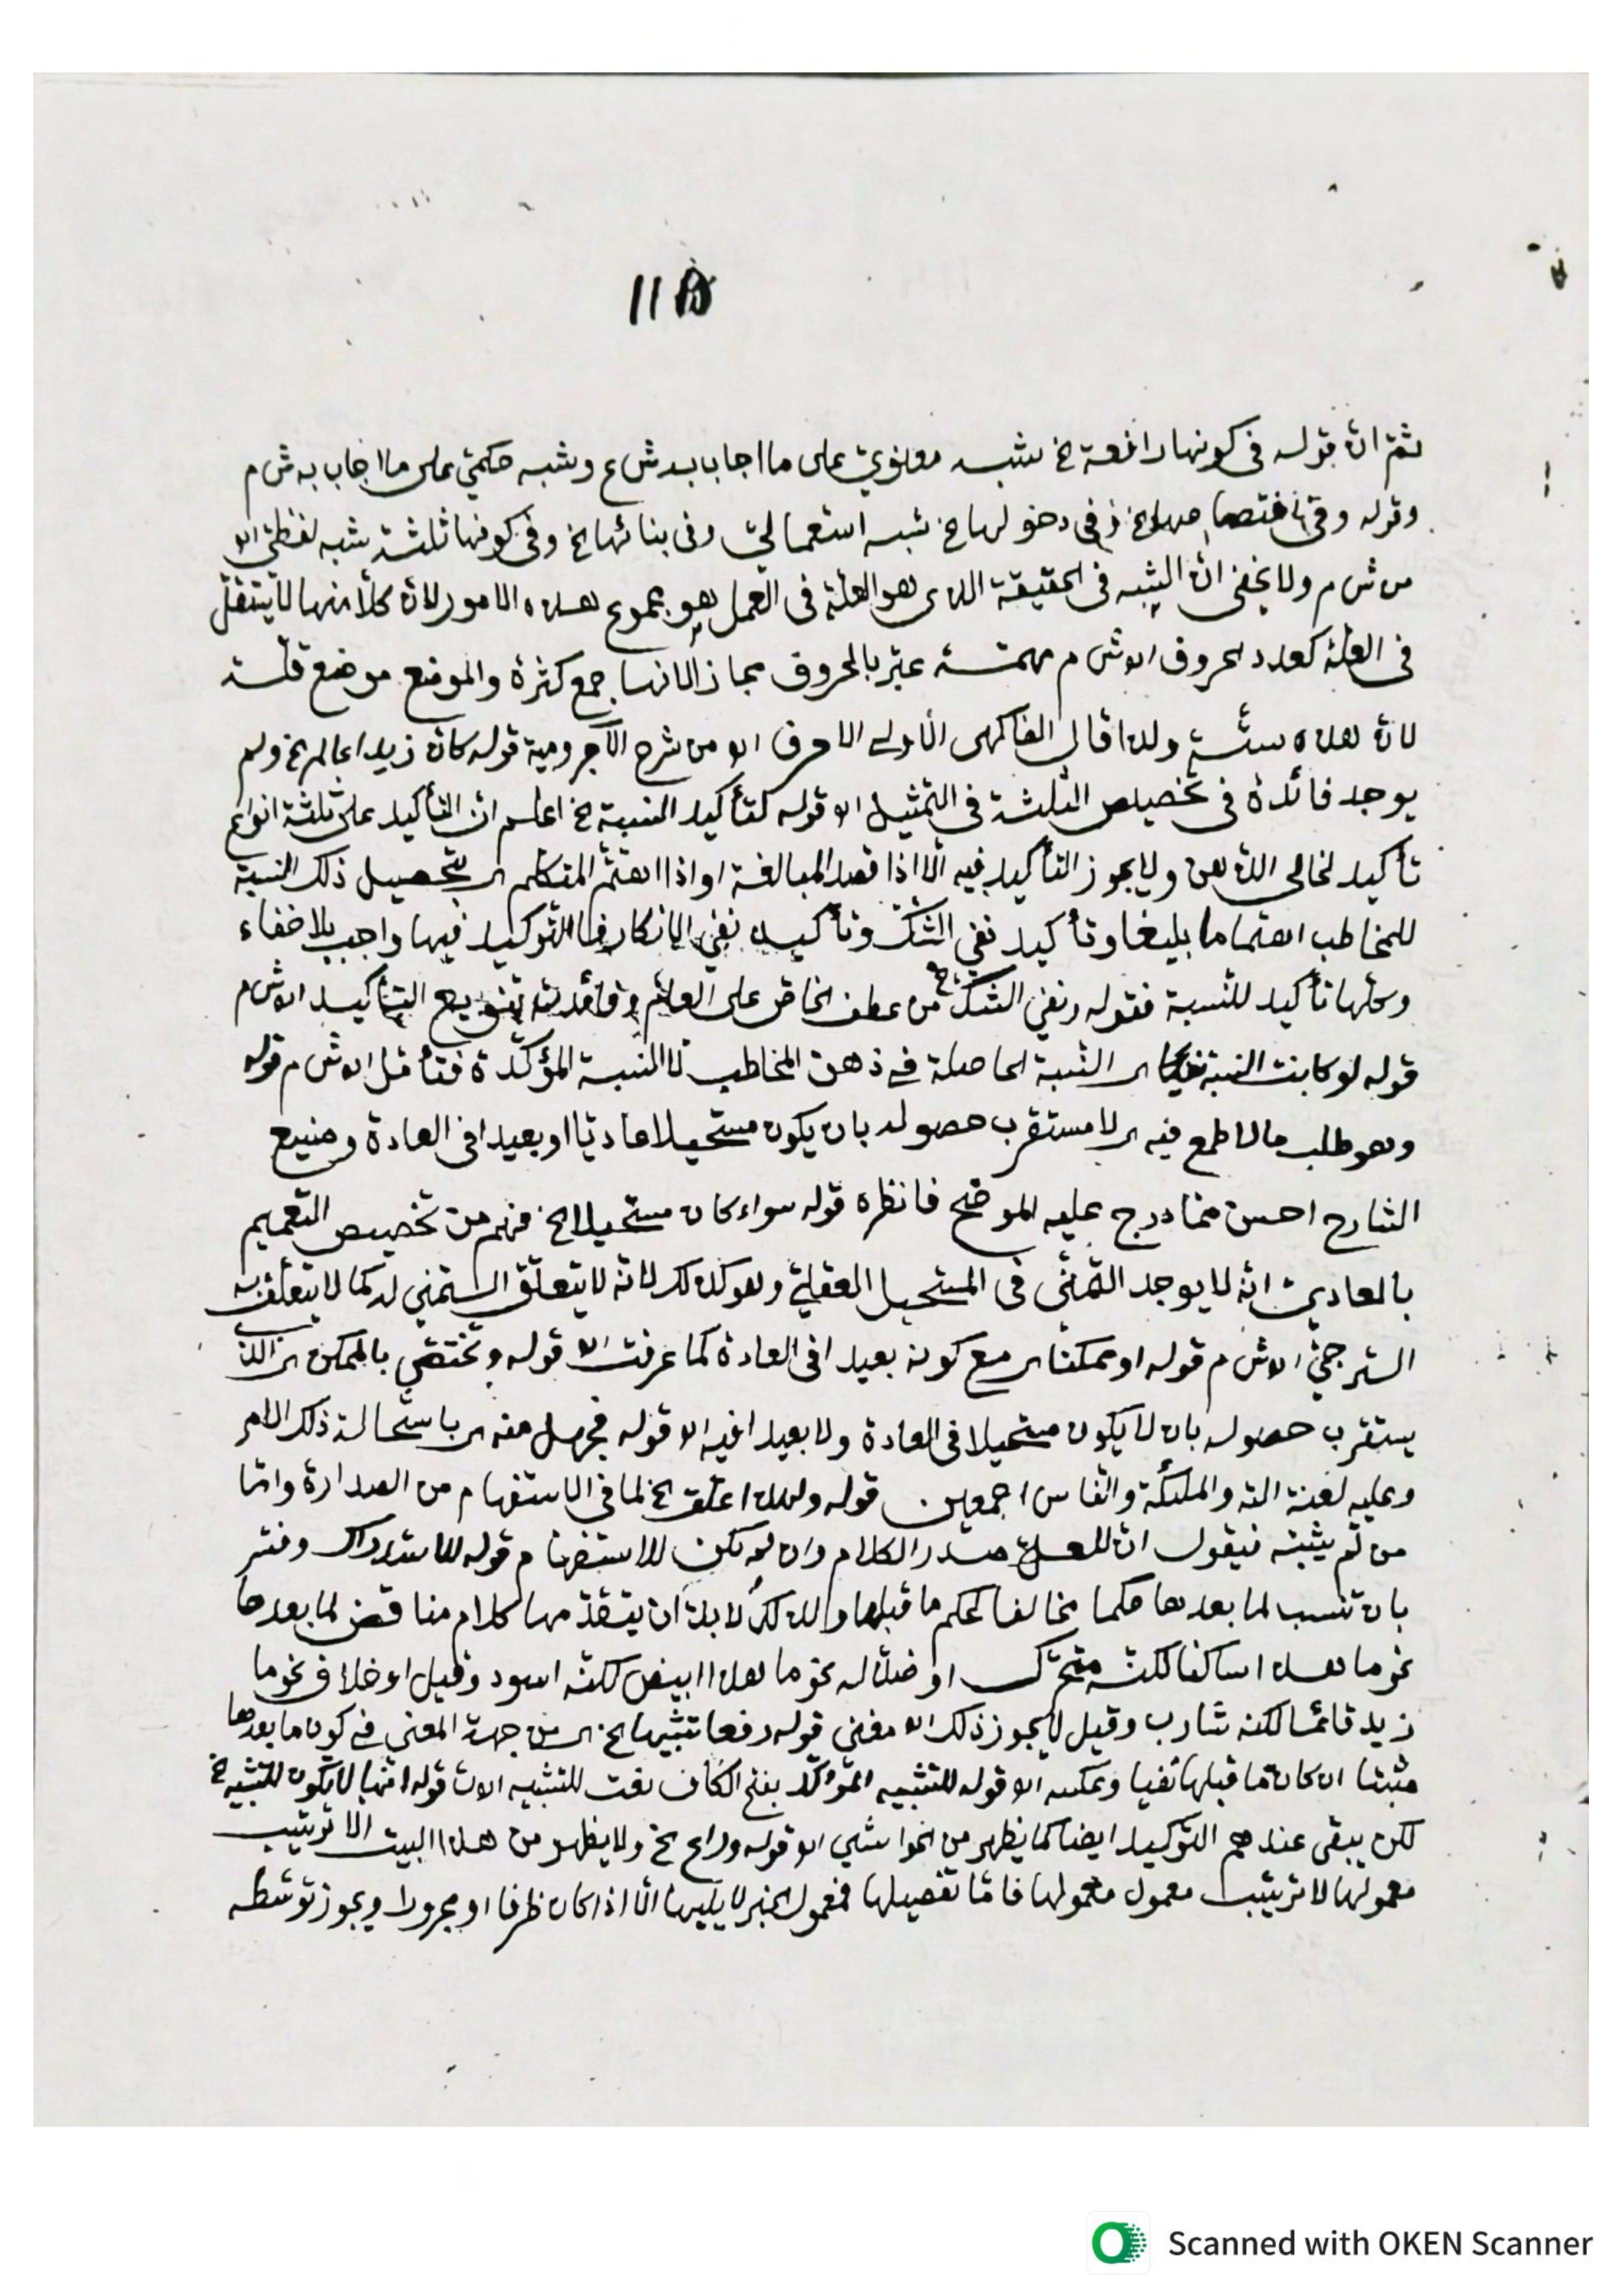 ١١٥
ثم ان قوله فى كونها رافعة الخ شبه معنوي على ما اجاب به ش ع وشبه حكمي على ما اجاب به ش م
وقوله وفى اختصاصها الخ وفى دخولها الخ شبه استعمالي وفى بنائها الخ وفى كونها ثلثة شبه لفظي اه
من ش م ولا يخفى ان الشبه فى الحقيقة الذى هو العلة فى العمل هو مجموع هذه الامور لان كلا منها لا يستقل
فى العلة كعدد الحروف اه ش م مهمة عبر بالحروف مجازا لانها جمع كثرة والموضع موضع قلة
لان هذه ستة ولذا قال الفاكهى الاولى الاحرف اه من شرح الآجرومية قوله كان زيدا عالم الخ ولم
يوجد فائدة فى تخصيص الثلثة فى التمثيل اه قوله لتأكيد النسبة الخ اعلم ان التأكيد على ثلثة انواع
تأكيد لخالى الذهن ولا يجوز التأكيد فيه الا اذا قصد المبالغة او اذا اهتم المتكلم اى بتحصيل ذلك النسبة
للمخاطب اهتماما بليغا وتأكيد نفي الشك وتأكيد نفي الانكار فالتوكيد فيها واجب بلا خفاء
وكلها تأكيد للنسبة فقوله ونفي الشك الخ من عطف الخاص على العام وفائدته تنويع التأكيد اه ش م
قوله لو كانت النسبة اى النسبة الحاصلة فى ذهن المخاطب لا النسبة المؤكدة فتأمل اه ش م قوله
وهو طلب ما لا طمع فيه اى لا مستقرب حصوله بان يكون مستحيلا عاديا او بعيدا فى العادة وصنيع
الشارح احسن مما درج عليه الموضح فانظره قوله سواء كان مستحيلا الخ فهم من تخصيص التعميم
بالعادي انه لا يوجد التمني فى المستحيل العقلي وهو كذلك لانه لا يتعلق التمني له كما لا يتعلق به
الترجي اه ش م قوله او ممكنا اى مع كونه بعيدا فى العادة كما عرفت اه قوله وتختص بالممكن اى الذى
يستقرب حصوله بان لا يكون مستحيلا فى العادة ولا بعيدا فيه اه قوله فجهل منه اى باستحالة ذلك الامر
وعليه لعنة الله والملئكة والناس اجمعين قوله ولهذا علق الخ لما فى الاستفهام من الصدارة واما
من لم يثبته فيقول ان للعل صدر الكلام وان لم تكن للاستفهام قوله للاستدراك وفسر
بان تنسب لما بعدها حكما مخالفا لحكم ما قبلها ولذلك لا بد ان يتقدمها كلام مناقض لما بعدها
نحو ما هذا ساكنا لكنه متحرك او ضد له نحو ما هذا ابيض لكنه اسود وقيل او خلاف نحو ما
زيد قائما لكنه شارب وقيل لا يجوز ذلك اه مغنى قوله رفعا تشبيها الخ اى من جهة المعنى فى كون ما بعدها
مثبتا ان كان ما قبلها نفيا وعكسه اه قوله للتشبيه المؤكد بفتح الكاف نعت للتشبيه اه قوله انها لا تكون للتشبيه الخ
لكن يبقى عندهم التوكيد ايضا كما يظهر من الحواشي اه قوله وراع الخ ولا يظهر من هذا البيت الا ترتيب
معمولها لا ترتيب معمول معمولها فاما تفصيلها فمعمول الخبر لا يليها الا اذا كان ظرفا او مجرورا ويجوز توسطه
Scanned with OKEN Scanner